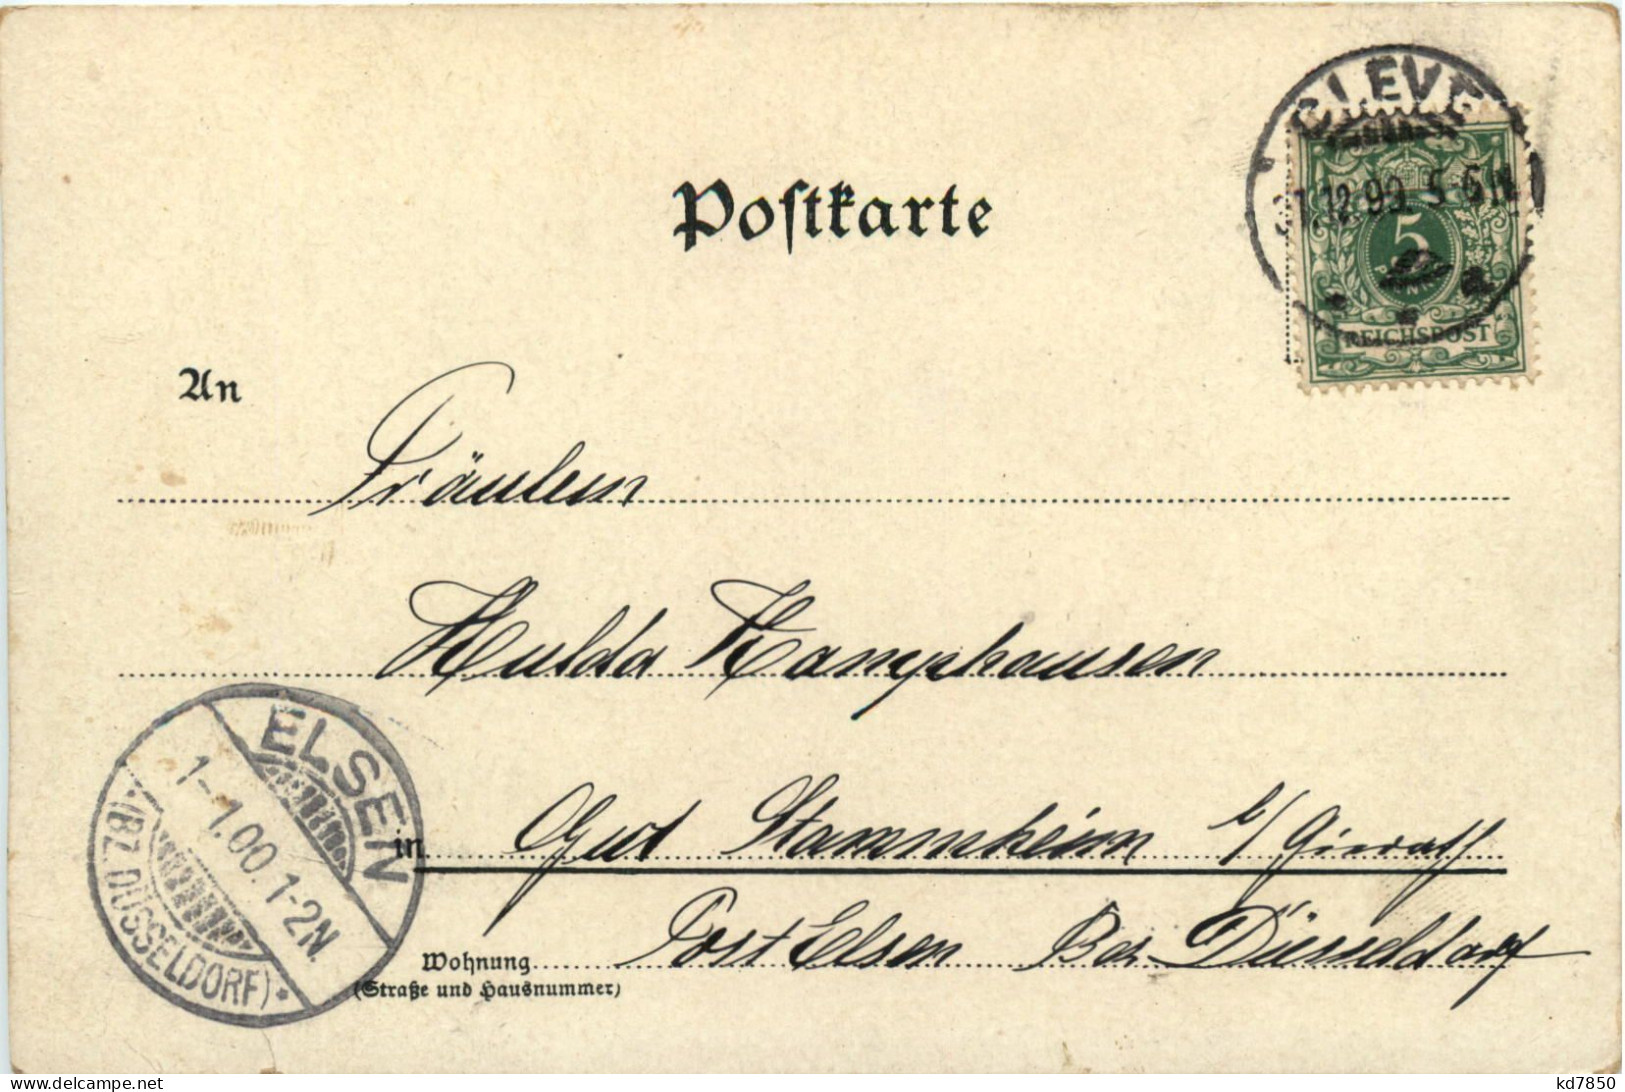 Postkarte
CLEVE
31.12.99 5-6N
5
REICHSPOST
An
Fräulein
Hulda Kamphausen
in Gut Stammheim b/ Gierath
Post Elsen Bez. Düsseldorf
Wohnung
(Straße und Hausnummer)
ELSEN
1-1.00.1-2N.
(BZ. DÜSSELDORF)
www.delcampe.net
kd7850